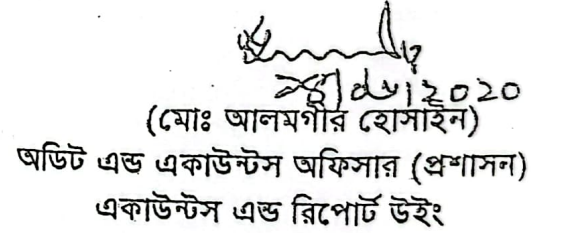 (মোঃ আলমগীর হোসাইন)
অডিট এন্ড একাউন্টস অফিসার (প্রশাসন)
একাউন্টস এন্ড রিপোর্ট উইং